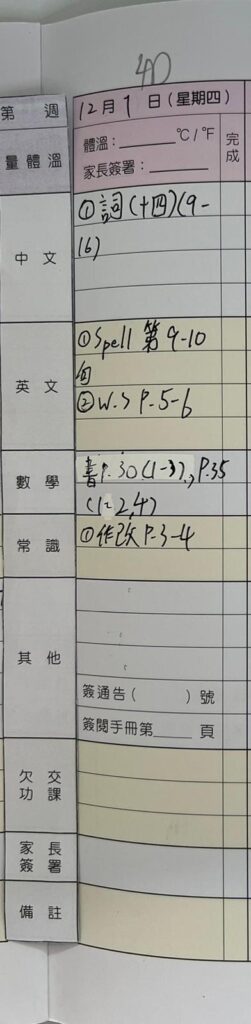 40
第 週
12月1日(星期四)
量體溫
體溫:______ °C/°F
家長簽署:______
完成
中文
①詞(十四)(9-
16)
英文
①Spell 第9-10
句
②W.S P.5-6
數學
書P.30(1-3), P.35
(1-2,4)
常識
①作改 P.3-4
其他
簽通告( )號
簽閱手冊第____頁
欠交
功課
家長
簽署
備註